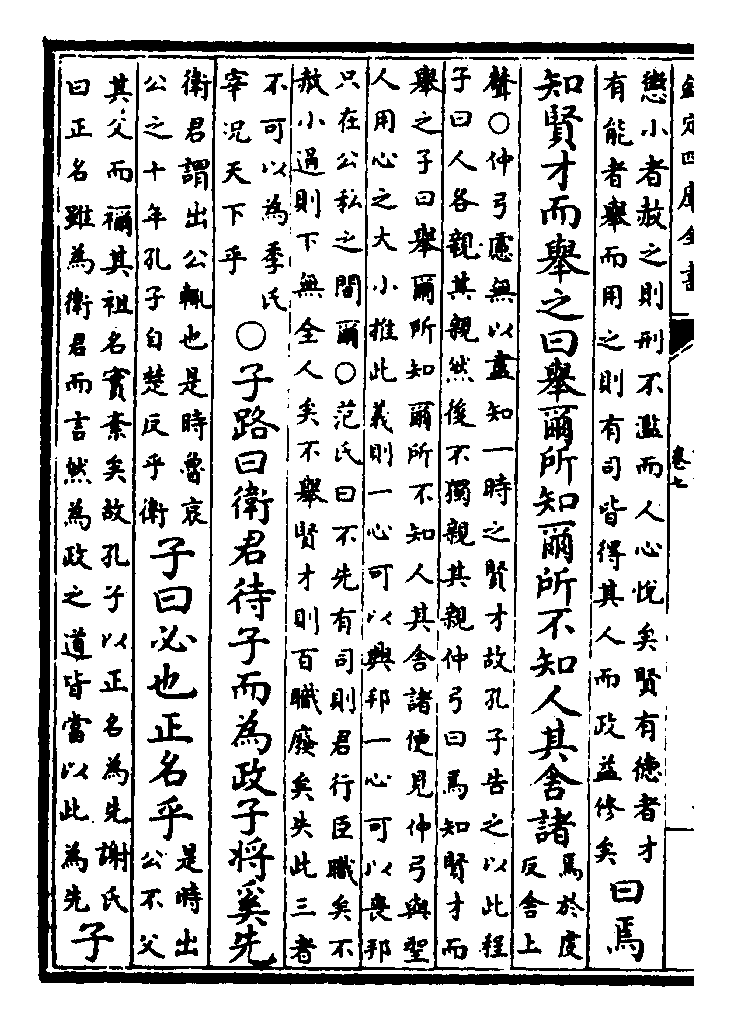 欽定四庫全書
卷七
懲小者赦之則刑不濫而人心悅矣賢有德者才
有能者舉而用之則有司皆得其人而政益修矣
曰焉
知賢才而舉之曰舉爾所知爾所不知人其舍諸
焉於虔
反舍上
聲○仲弓慮無以盡知一時之賢才故孔子告之以此程
子曰人各親其親然後不獨親其親仲弓曰焉知賢才而
舉之子曰舉爾所知爾所不知人其舍諸便見仲弓與聖
人用心之大小推此義則一心可以興邦一心可以喪邦
只在公私之間爾○范氏曰不先有司則君行臣職矣不
赦小過則下無全人矣不舉賢才則百職廢矣失此三者
不可以為季氏
宰况天下乎
○子路曰衛君待子而為政子將奚先
衛君謂出公輒也是時魯哀
公之十年孔子自楚反乎衛
子曰必也正名乎
是時出
公不父
其父而禰其祖名實紊矣故孔子以正名為先謝氏
曰正名雖為衛君而言然為政之道皆當以此為先
子